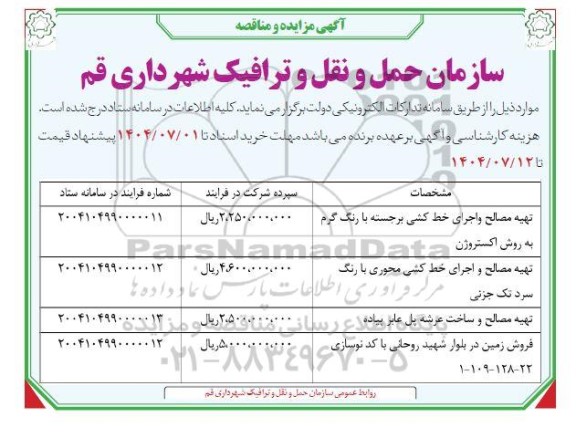 آگهی مزایده و مناقصه
سازمان حمل و نقل و ترافیک شهرداری قم
موارد ذیل را از طریق سامانه تدارکات الکترونیکی دولت برگزار می نماید. کلیه اطلاعات در سامانه ستاد درج شده است.
هزینه کارشناسی و آگهی بر عهده برنده می باشد مهلت خرید اسناد تا ۱۴۰۴/۰۷/۰۱ پیشنهاد قیمت
تا ۱۴۰۴/۰۷/۱۲
مشخصات سپرده شرکت در فرایند شماره فرایند در سامانه ستاد
تهیه مصالح واجرای خط کشی برجسته با رنگ گرم ۲،۲۵۰،۰۰۰،۰۰۰ریال ۲۰۰۴۱۰۴۹۹۰۰۰۰۰۱۱
به روش اکستروژن
تهیه مصالح و اجرای خط کشی محوری با رنگ ۴،۶۰۰،۰۰۰،۰۰۰ریال ۲۰۰۴۱۰۴۹۹۰۰۰۰۰۱۲
سرد تک جزئی
تهیه مصالح و ساخت عرشه پل عابر پیاده ۲،۵۰۰،۰۰۰،۰۰۰ریال ۲۰۰۴۱۰۴۹۹۰۰۰۰۰۱۳
فروش زمین در بلوار شهید روحانی با کد نوسازی ۵،۰۰۰،۰۰۰،۰۰۰ریال ۲۰۰۴۱۰۴۹۹۰۰۰۰۰۱۲
۱-۱۰۹-۱۲۸-۲۲
روابط عمومی سازمان حمل و نقل و ترافیک شهرداری قم
ParsNamadData
مرکز فرآوری اطلاعات پارس نماد داده ها
پایگاه اطلاع رسانی مناقصه و مزایده
۰۲۱-۸۸۳۴۹۶۷۰-۵